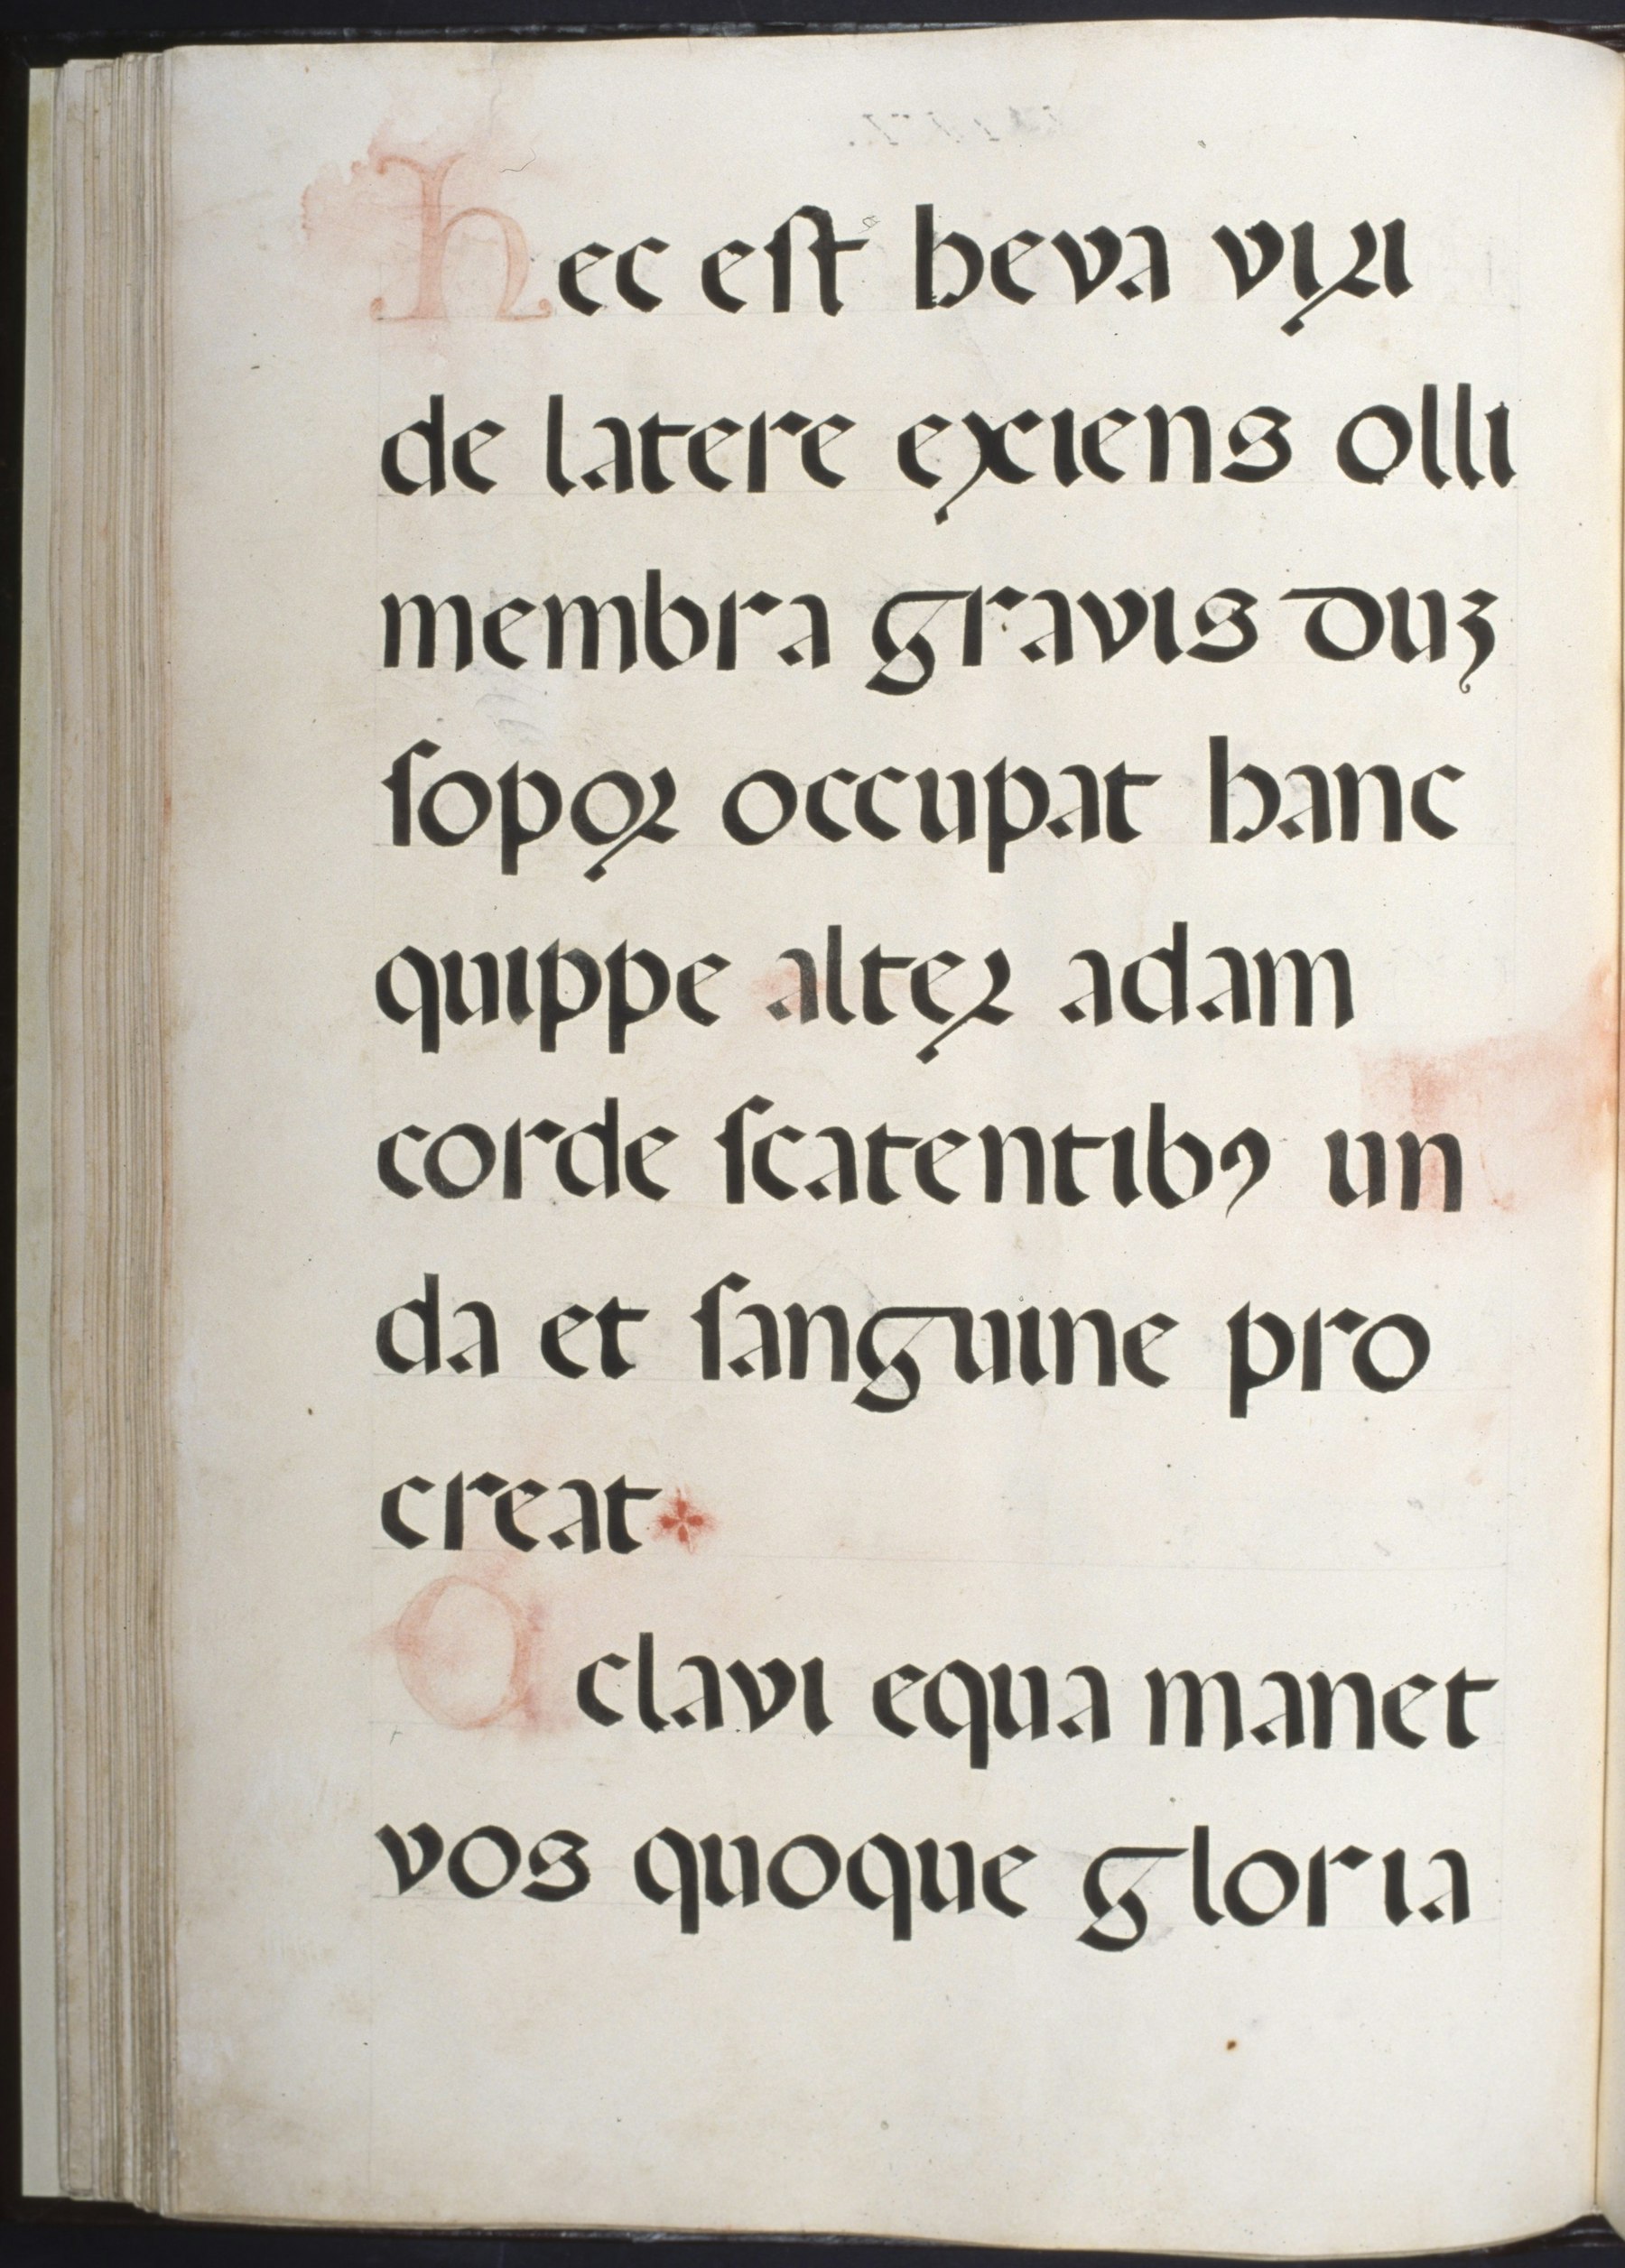 hec eſt heva viri
de latere exiens olli
membra gravis duꝫ
ſopoꝛ occupat hanc
quippe alteꝛ adam
corde ſcatentibꝯ un
da et ſanguine pro
creat
A clavi equa manet
vos quoque gloria